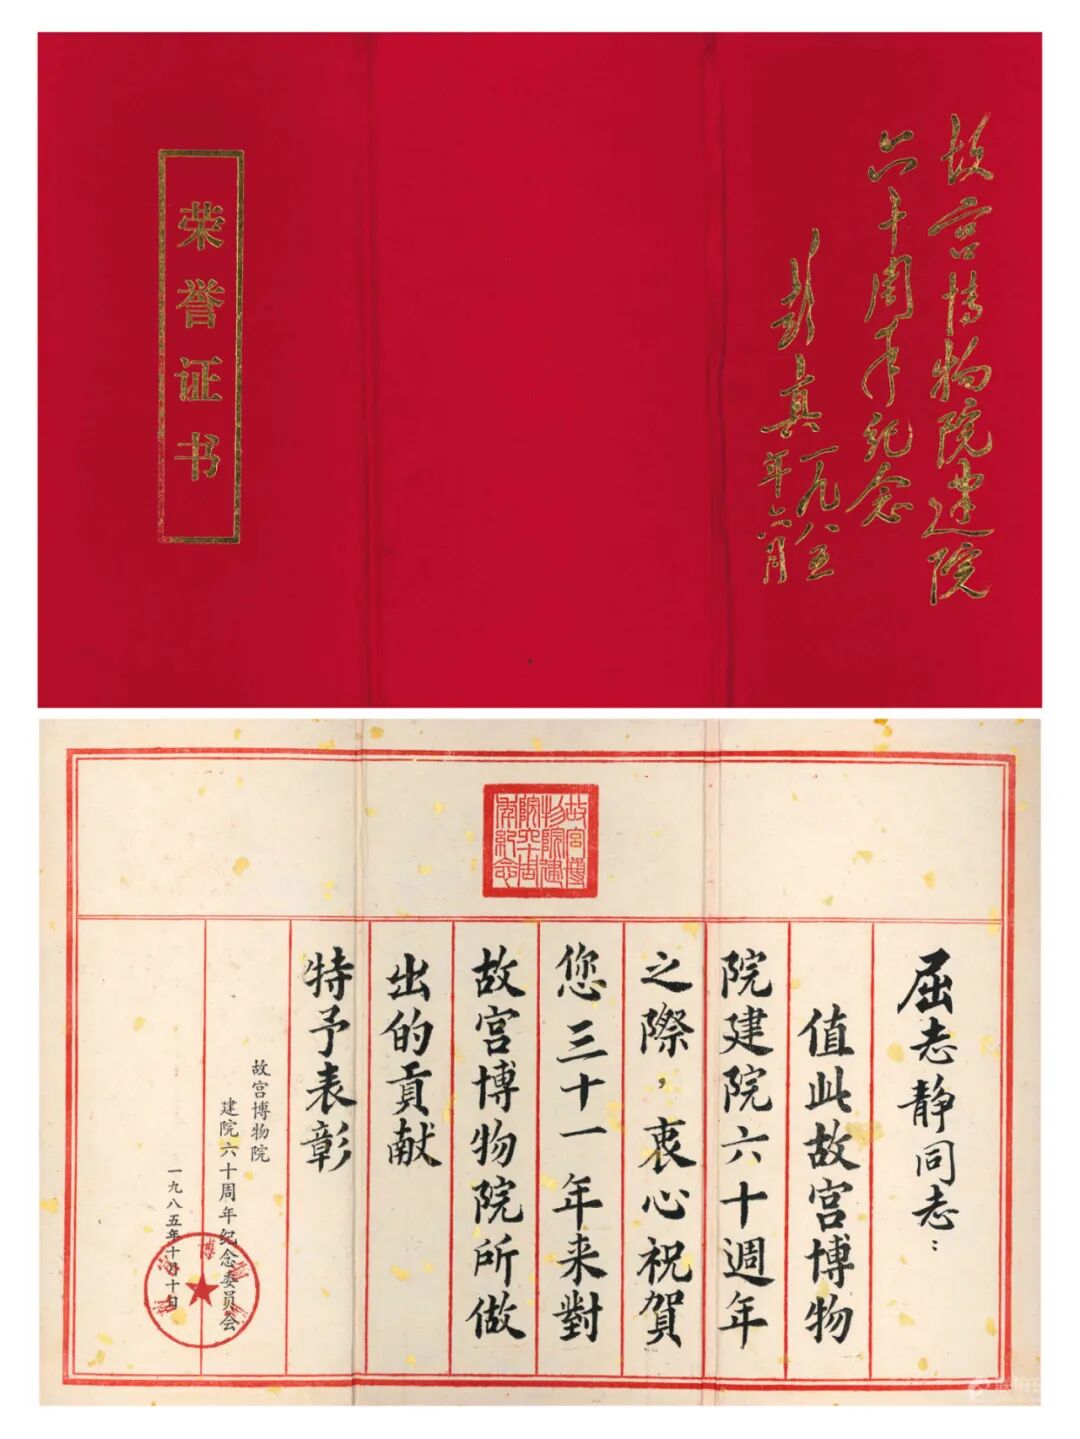 荣誉证书
故宫博物院建院
六十周年纪念
彭真
一九八五
年六月
故宮博
物院建
院六十周
年紀念
屈志静同志：
值此故宫博物
院建院六十週年
之際，衷心祝賀
您三十一年来對
故宫博物院所做
出的貢献
特予表彰
故宫博物院
建院六十周年纪念委员会
一九八五年十月十日